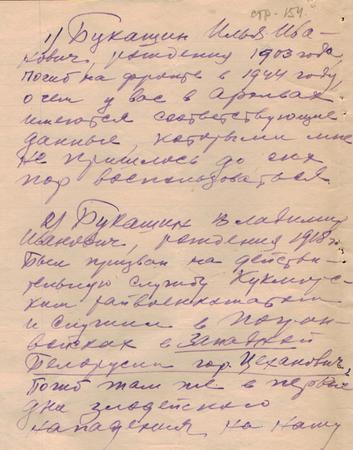 стр-154.
1) Букашин Илья Ива-
нович, рождения 1903 года,
погиб на фронте в 1944 году
о чем у вас в Архивах
имеются соответствующие
данные, которыми мне
не пришлось до сих
пор воспользоваться
2) Букашин Владимир
Иванович, рождения 1918 г.
Был призван на действи-
тельную службу Кукморс-
ким райвоенкоматом
и служил в погран-
войсках в Западной
Белорусии гор. Цеханович,
Погиб там же в первые
дни злодейского
нападения на нашу